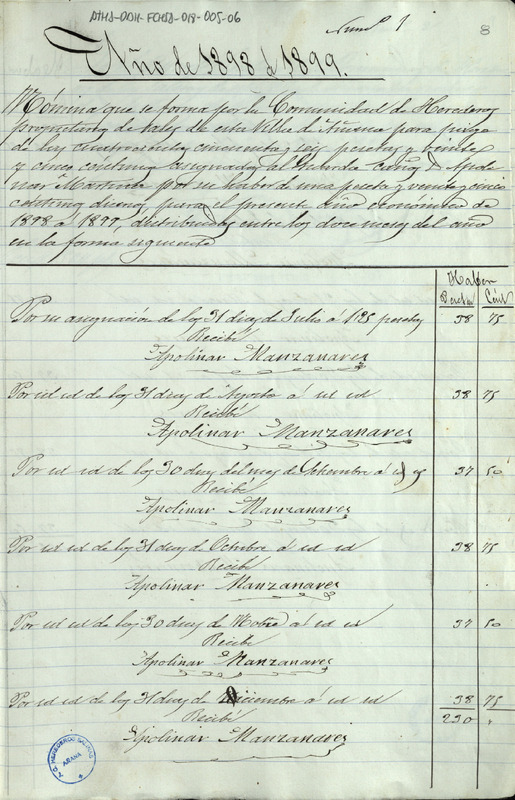 ATHA-DOH-FCHSA-018-005-06
Num.º 1
8
Año de 1898 á 1899.
Nómina que se forma por la Comunidad de Herederos
propietarios de Sales de esta Villa de Añana para pago
de las cuatrocientas cincuenta y seis pesetas y veinte
y cinco céntimos asignadas al Guarda
por su haber de una peseta y veinte y cinco
céntimos diarios para el presente año económico de
1898 á 1899, distribuidas entre los doce meses del año
en la forma siguiente
Haber
Pesetas Cént
Por su asignación de los 31 dias de Julio á 1'25 pesetas 38 75
Recibí
Apolinar Manzanares
Por id id de los 31 dias de Agosto á id id 38 75
Recibí
Apolinar Manzanares
Por id id de los 30 dias del mes de Setiembre á id id 37 50
Recibí
Apolinar Manzanares
Por id id de los 31 dias de Octubre á id id 38 75
Recibí
Apolinar Manzanares
Por id id de los 30 dias de Nobre á id id 37 50
Recibí
Apolinar Manzanares
Por id id de los 31 dias de Diciembre á id id 38 75
230 "
Recibí
Apolinar Manzanares
AÑANA